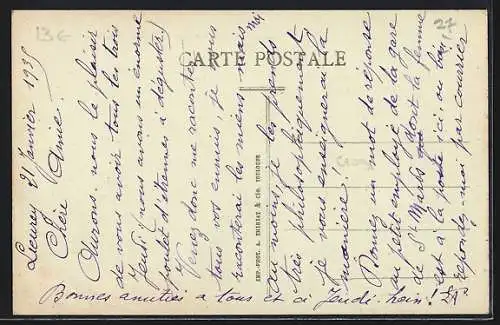 13€
27
CARTE POSTALE
IMP.-PHOT. A. THIRIAT & CIE, TOULOUSE
Lieurey 21 Janvier 1935
Chère Amie.
Aurons-nous le plaisir
de vous avoir tous les trois
Jeudi (nous avons un énorme
boulet d'étrennes à déguster)
Venez donc me raconter
tous vos ennuis, je vous
raconterai les miens mais
moi
au moins, je les prends
très philosophiquement
je vous enseignerai la
manière!
Bonnez un mot de réponse
au petit employé de la gare
de St Mards dont la femme
est à la poste ici ou bien
répondez-moi par courrier
Bonnes amitiés à tous et à Jeudi. hein!